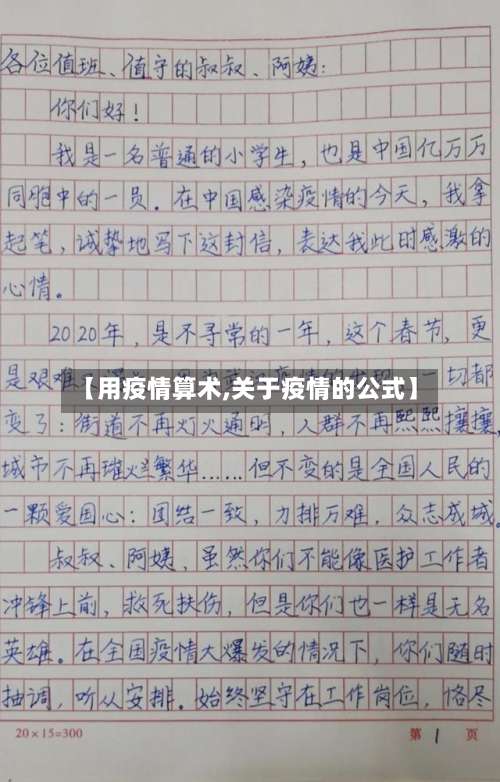 各位值班、值守的叔叔、阿姨:
你们好!
我是一名普通的小学生,也是中国亿万万
同胞中的一员。在中国感染疫情的今天,我拿
起笔,诚挚地写下这封信,表达我此时感激的
心情。
2020年,是不寻常的一年,这个春节,更
是艰难
一切都
【用疫情算术,关于疫情的公式】
变了:街道不再灯火通明,人群不再熙熙攘攘,
城市不再璀灿繁华……但不变的是全国人民的
一颗爱国心:团结一致,力排万难,众志成城。
叔叔、阿姨,虽然你们不能像医护工作者
冲锋上前,救死扶伤,但是你们也一样是无名
英雄。在全国疫情大爆发的情况下,你们随时
抽调,听从安排。始终坚守在工作岗位,恪尽
20×15=300
第 1 页